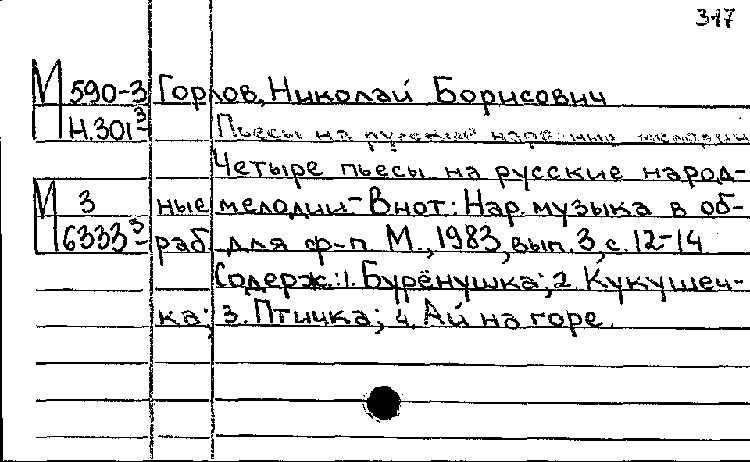 317
М 590-3 Горлов, Николай Борисович
Н.301 3 Пьесы на русские народные мелодии
Четыре пьесы на русские народ-
М 3 ные мелодии - В нот: Нар. музыка в об-
6333 3 раб. для ф-п М., 1983, вып. 3, с. 12-14
Содерж.: 1. Бурёнушка; 2. Кукушеч-
ка; 3. Птичка; 4. Ай на горе.